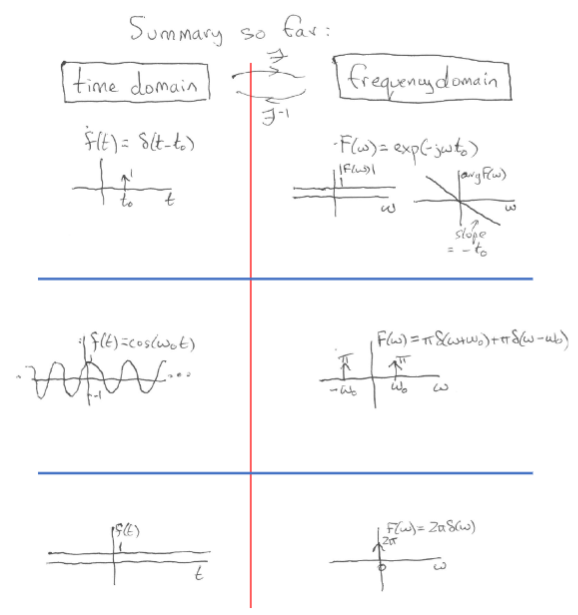 Summary so far:
F
time domain
frequency domain
F-1
f(t) = δ(t-t₀)
1
t₀
t
F(ω) = exp(-jωt₀)
|F(ω)|
1
ω
arg F(ω)
ω
slope
= -t₀
f(t)=cos(ω₀t)
1
-1
F(ω) = πδ(ω+ω₀)+πδ(ω-ω₀)
π
π
-ω₀
ω₀
ω
f(t)
1
t
F(ω) = 2πδ(ω)
2π
0
ω